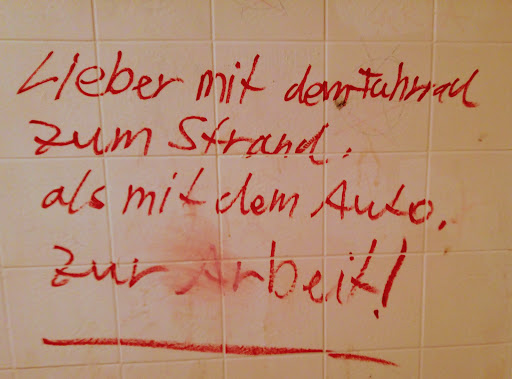 Lieber mit dem Fahrrad
zum Strand.
als mit dem Auto.
zur Arbeit!